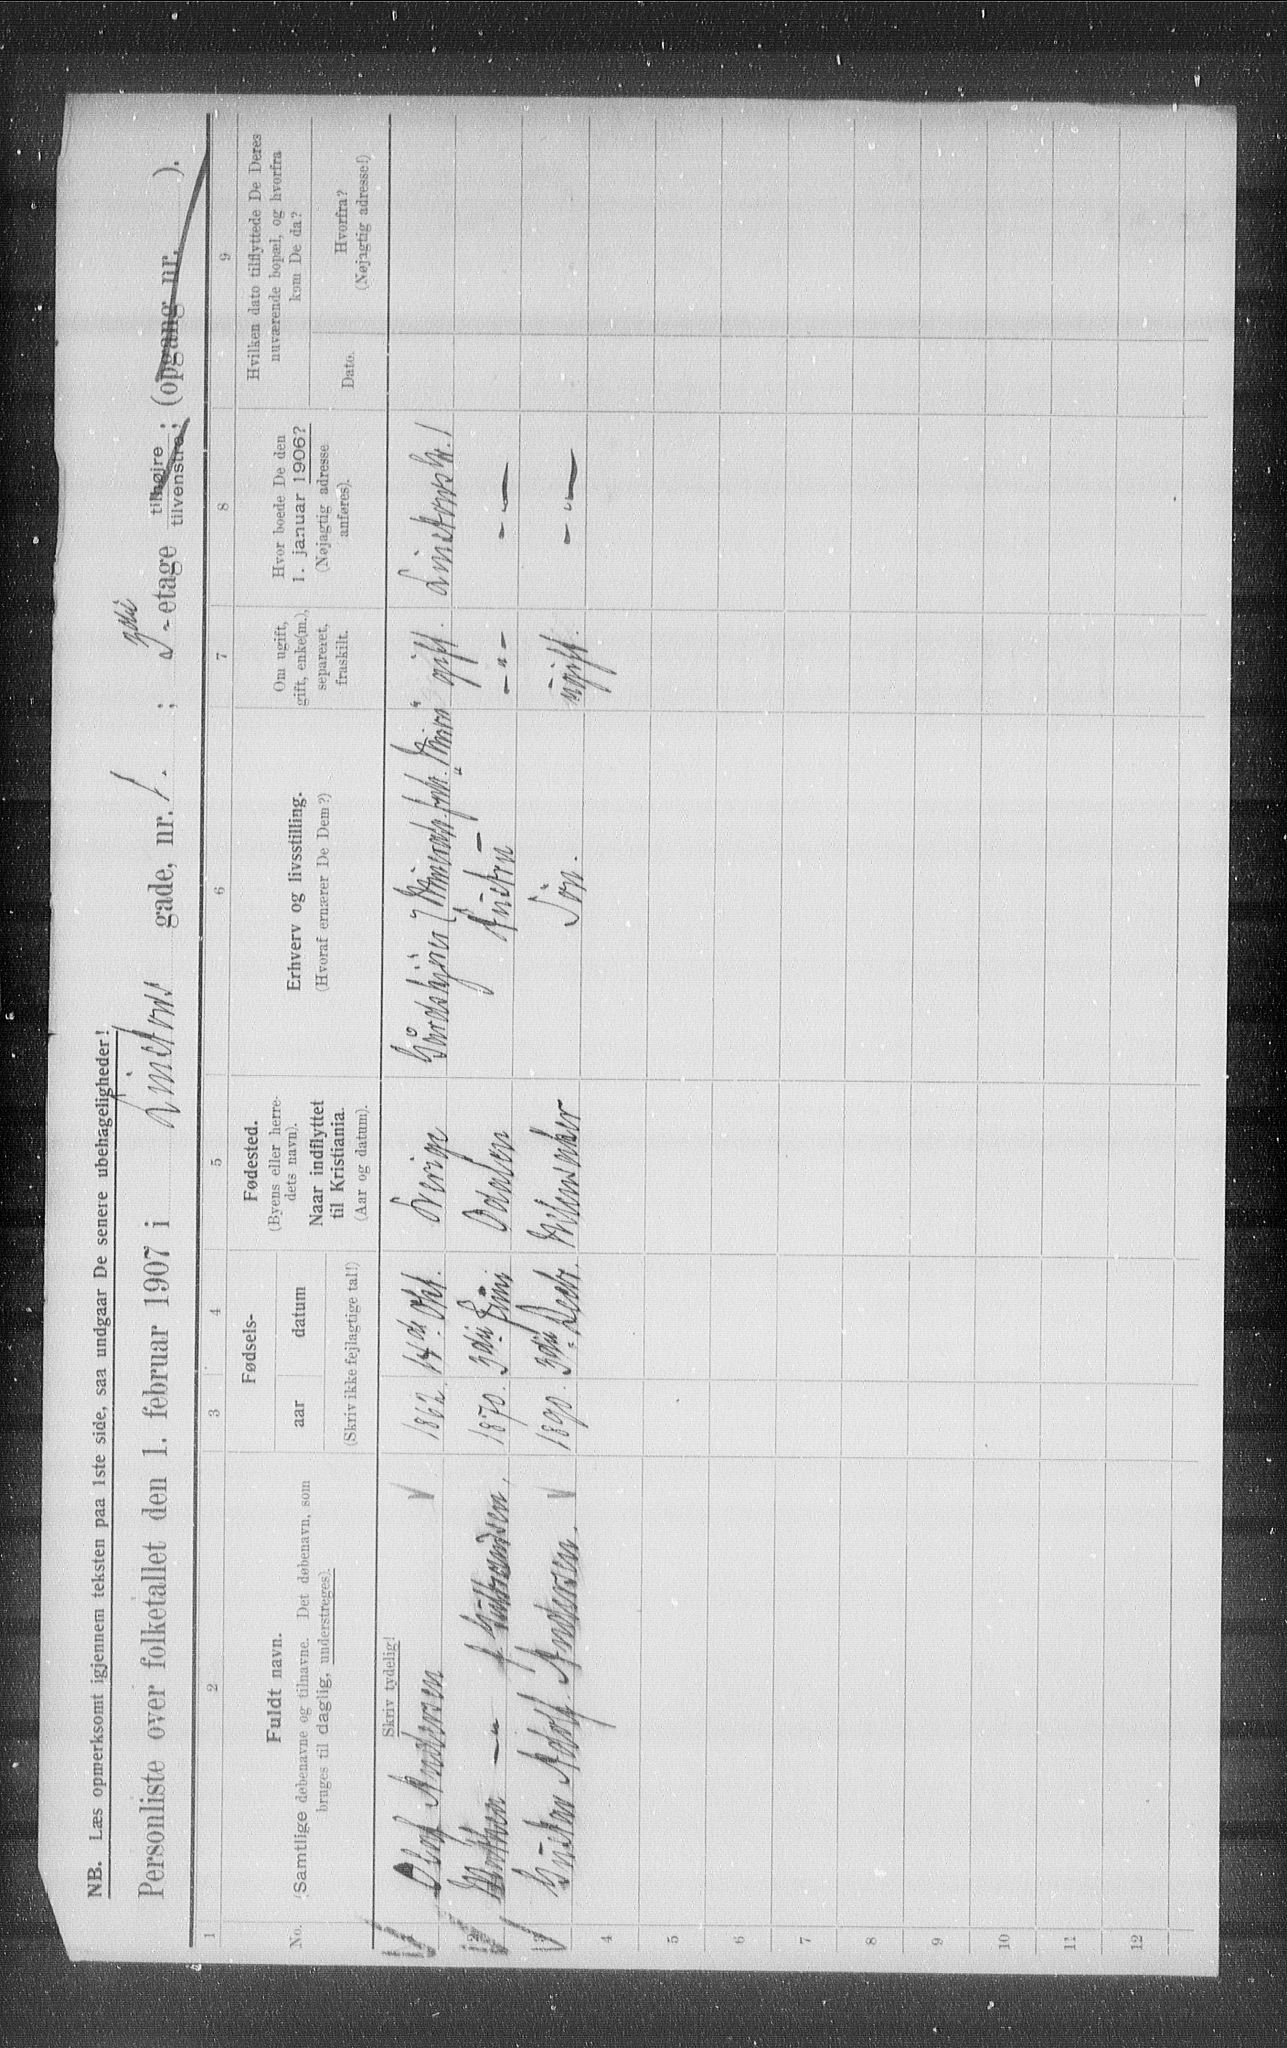 NB. Læs opmerksomt igjennem teksten paa 1ste side, saa undgaar De senere ubehageligheder!
Personliste over folketallet den 1. februar 1907 i Linstows gade, nr. 1. ; 2-etage tilhøjre tilvenstre; (opgang nr. ).
1 2 3 4 5 6 7 8 9
No.
Fuldt navn.
(Samtlige døbenavne og tilnavne. Det døbenavn, som
bruges til daglig, understreges).
Fødsels-
aar datum
(Skriv ikke fejlagtige tal!)
Fødested.
(Byens eller herre-
dets navn).
Naar indflyttet
til Kristiania.
(Aar og datum).
Erhverv og livsstilling.
(Hvoraf ernærer De Dem?)
Om ugift,
gift, enke(m.),
separeret,
fraskilt.
Hvor boede De den
1. januar 1906?
(Nøjagtig adresse
anføres).
Hvilken dato tilflyttede De Deres
nuværende bopæl, og hvorfra
kom De da?
Dato. Hvorfra?
(Nøjagtig adresse!)
Skriv tydelig!
1 Olaf Andersen 1862. 14de Okt. Sverige gift. Linstowsgt. 1
2 — " — f. Gulbrandsen. 1870. 3die Juni Odalen Hustru — " — — " —
3 Gustav Adolf Andersen. 1890. 3die Decbr. Søn. ugift. — " —
4
5
6
7
8
9
10
11
12